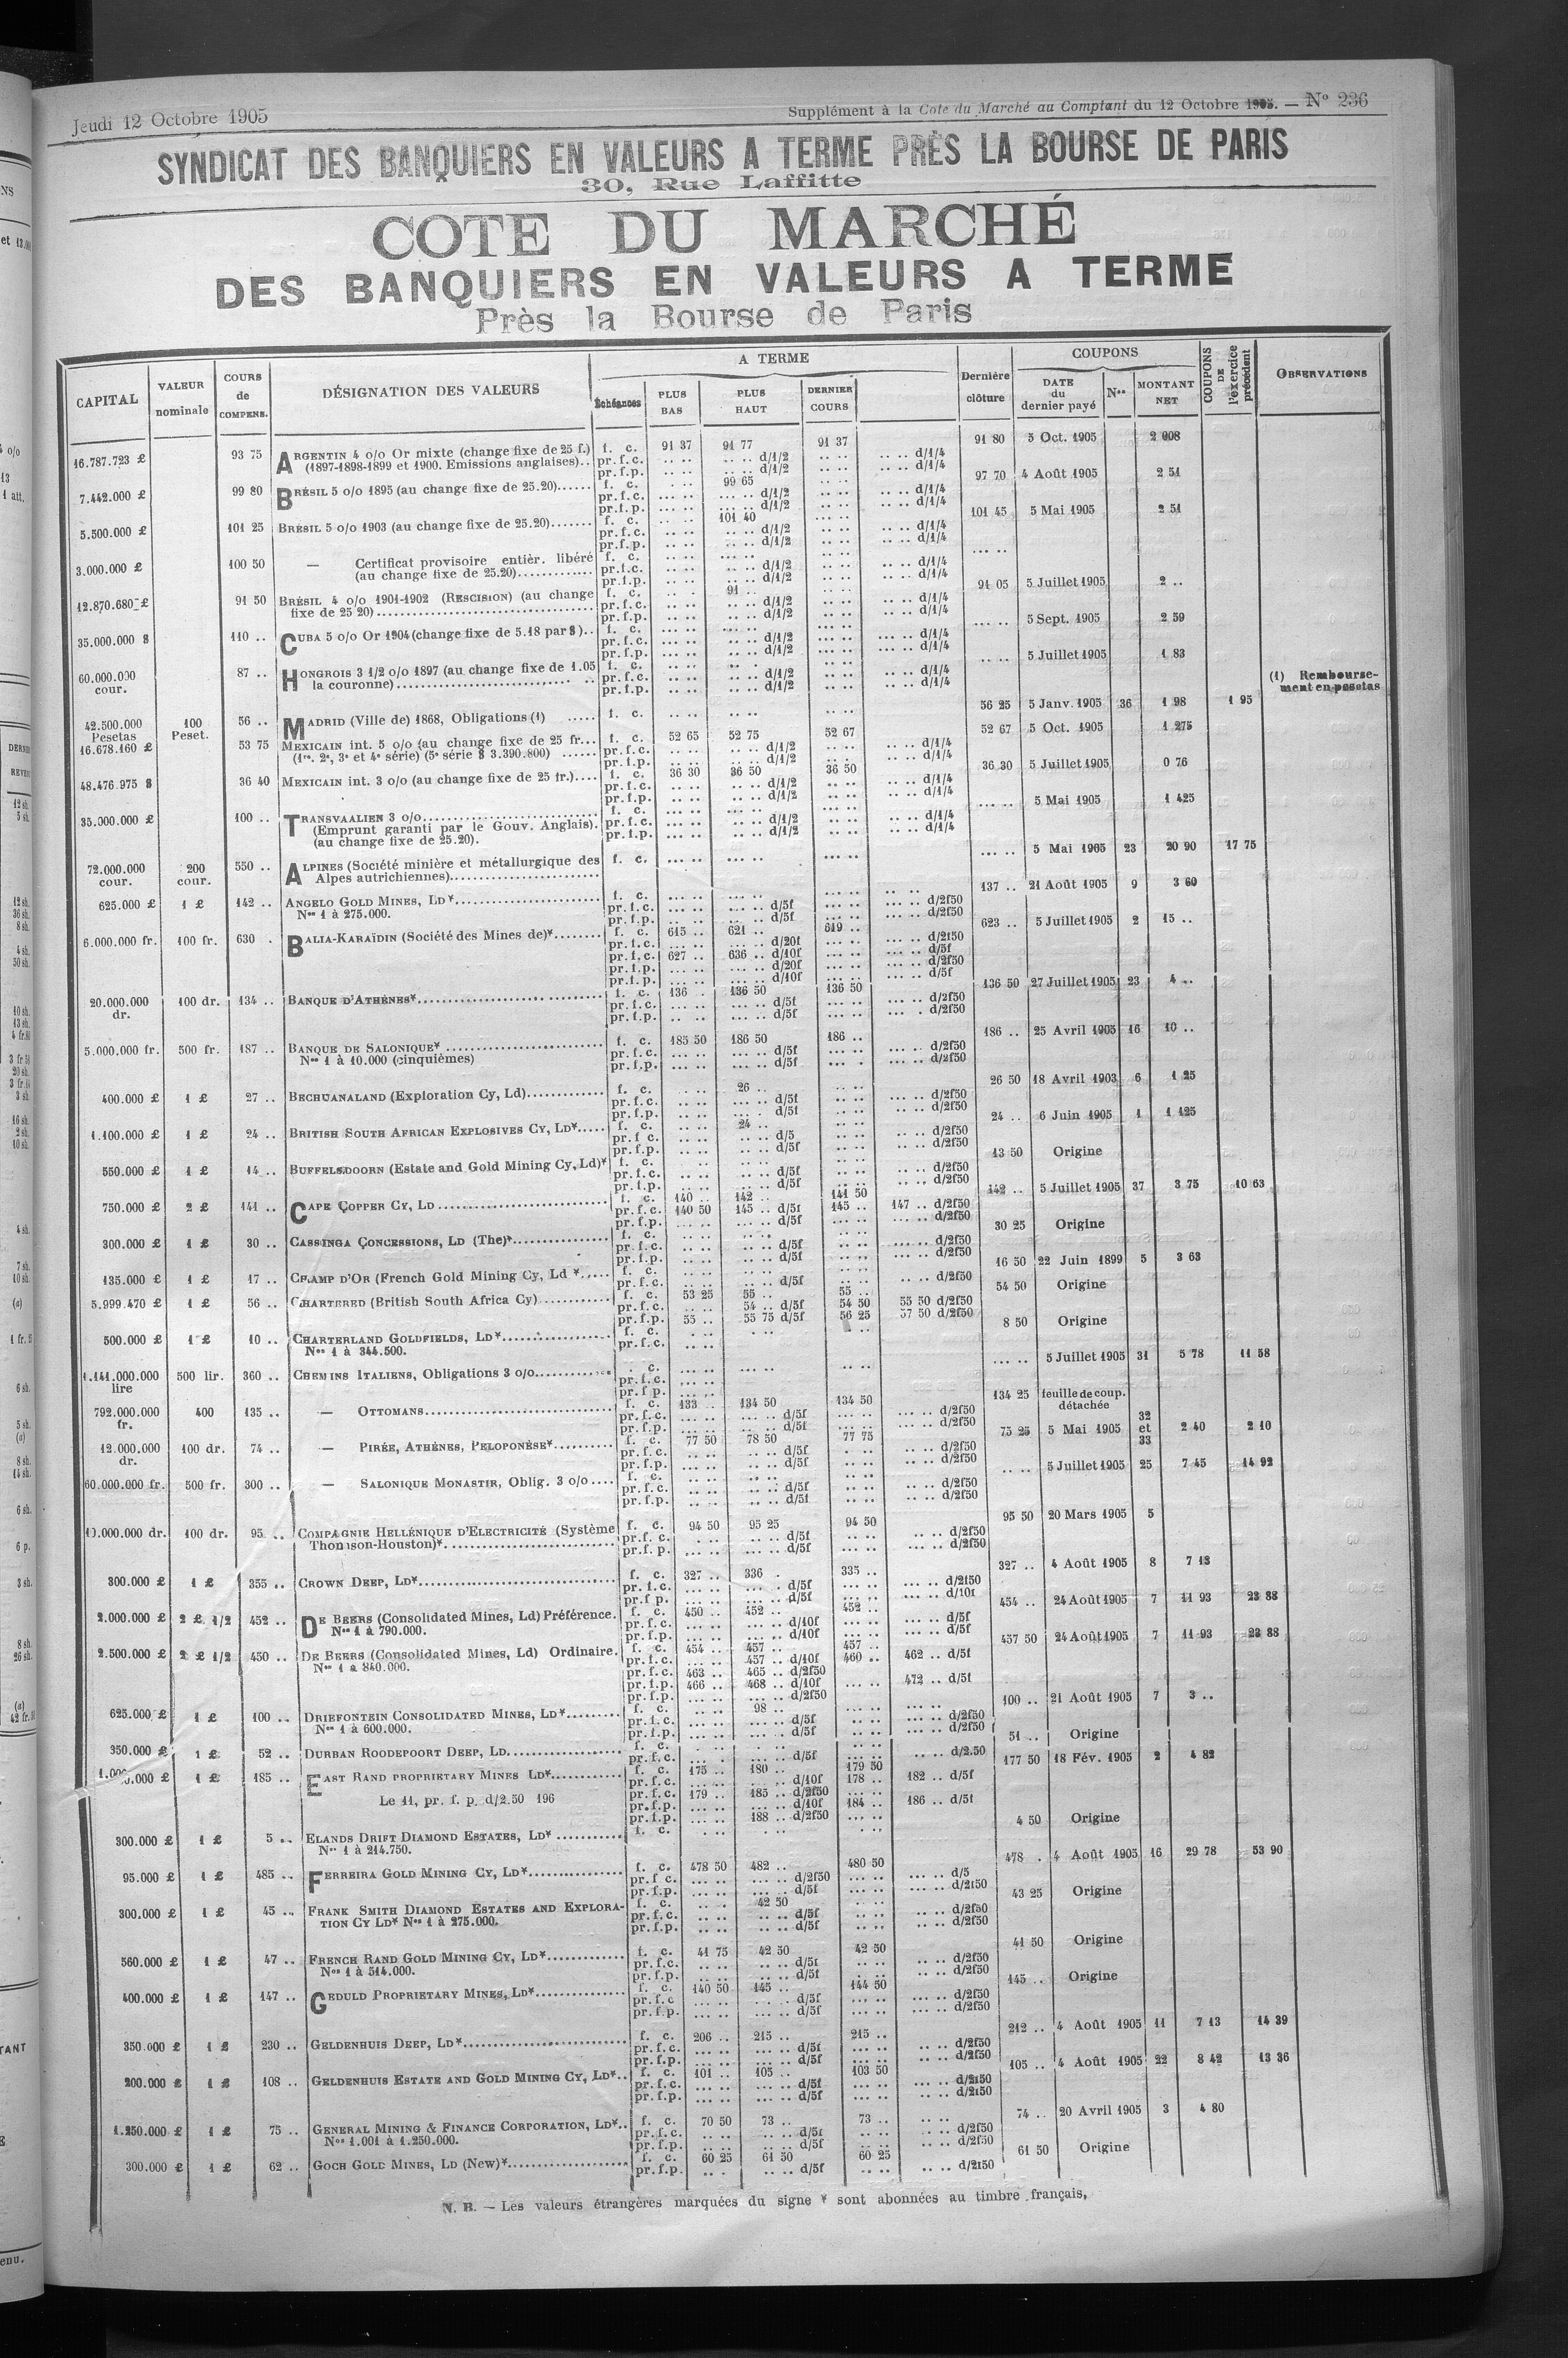 Jeudi 12 Octobre 1905
Supplément à la Cote du Marché au Comptant du 12 Octobre 1905. — N° 236
SYNDICAT DES BANQUIERS EN VALEURS A TERME PRÈS LA BOURSE DE PARIS
30, Rue Laffitte
COTE DU MARCHÉ
DES BANQUIERS EN VALEURS A TERME
Près la Bourse de Paris
CAPITAL | VALEUR nominale | COURS de COMPENS. | DÉSIGNATION DES VALEURS | A TERME | Échéances | PLUS BAS | PLUS HAUT | DERNIER COURS | Dernière clôture | COUPONS | DATE du dernier payé | Nos | MONTANT NET | COUPONS DE l'exercice précédent | OBSERVATIONS
16.787.723 £ 93 75 ARGENTIN 4 o/o Or mixte (change fixe de 25 f.) f. c. 91 37 91 77 91 37 91 80 5 Oct. 1905 2 008
(1897-1898-1899 et 1900. Emissions anglaises).. pr.f.c. d/1/2 d/1/4
pr.f.p. d/1/2 d/1/4
7.442.000 £ 99 80 BRÉSIL 5 o/o 1895 (au change fixe de 25.20)...... f. c. 99 65 97 70 4 Août 1905 2 51
pr.f.c. d/1/2 d/1/4
pr.f.p. d/1/2 d/1/4
5.500.000 £ 101 25 BRÉSIL 5 o/o 1903 (au change fixe de 25.20)....... f. c. 101 40 101 45 5 Mai 1905 2 51
pr.f.c. d/1/2 d/1/4
pr.f.p. d/1/2 d/1/4
3.000.000 £ 100 50 — Certificat provisoire entièr. libéré f. c.
(au change fixe de 25.20)............. pr.f.c. d/1/2 d/1/4
pr.f.p. d/1/2 d/1/4
12.870.680 £ 91 50 BRÉSIL 4 o/o 1901-1902 (RESCISION) (au change f. c. 91 .. 91 05 5 Juillet 1905 2 ..
fixe de 25 20)..... pr.f.c. d/1/2 d/1/4
pr.f.p. d/1/2 d/1/4
35.000.000 $ 110 .. CUBA 5 o/o Or 1904 (change fixe de 5.18 par $).. f. c. 5 Sept. 1905 2 59
pr.f.c. d/1/2 d/1/4
pr.f.p. d/1/2 d/1/4
60.000.000 cour. 87 .. HONGROIS 3 1/2 o/o 1897 (au change fixe de 1.05 f. c. 5 Juillet 1905 1 83
la couronne)..... pr.f.c. d/1/2 d/1/4
pr.f.p. d/1/2 d/1/4
(1) Remboursement en pesetas
42.500.000 Pesetas 100 Peset. 56 .. MADRID (Ville de) 1868, Obligations (1) ..... f. c. 56 25 5 Janv. 1905 36 1 98 1 95
16.678.160 £ 53 75 MEXICAIN int. 5 o/o (au change fixe de 25 fr... f. c. 52 65 52 75 52 67 52 67 5 Oct. 1905 1 275
(1re. 2e, 3e et 4e série) (5e série $ 3.390.800) ...... pr.f.c. d/1/2 d/1/4
pr.f.p. d/1/2 d/1/4
48.476.975 $ 36 40 MEXICAIN int. 3 o/o (au change fixe de 25 fr.).... f. c. 36 30 36 50 36 50 36 30 5 Juillet 1905 0 76
pr.f.c. d/1/2 d/1/4
pr.f.p. d/1/2 d/1/4
35.000.000 £ 100 .. TRANSVAALIEN 3 o/o..... f. c. 5 Mai 1905 1 425
(Emprunt garanti par le Gouv. Anglais). pr.f.c. d/1/2 d/1/4
(au change fixe de 25.20). pr.f.p. d/1/2 d/1/4
72.000.000 cour. 200 cour. 550 .. ALPINES (Société minière et métallurgique des f. c. 5 Mai 1905 23 20 90 17 75
Alpes autrichiennes).....
625.000 £ 1 £ 142 .. ANGELO GOLD MINES, LD*..... f. c. 137 .. 21 Août 1905 9 3 60
Nos 1 à 275.000. pr.f.c. d/5f d/2f50
pr.f.p. d/5f d/2f50
6.000.000 fr. 100 fr. 630 . BALIA-KARAÏDIN (Société des Mines de)*........ f. c. 615 .. 621 .. 619 .. 623 .. 5 Juillet 1905 2 15 ..
pr.f.c. d/20f d/2f50
pr.f.c. 627 .. 636 .. d/10f d/5f
pr.f.p. d/20f d/2f50
pr.f.p. d/10f d/5f
20.000.000 dr. 100 dr. 134 .. BANQUE D'ATHÈNES*..... f. c. 136 .. 136 50 136 50 136 50 27 Juillet 1905 23 4 ..
pr.f.c. d/5f d/2f50
pr.f.p. d/5f d/2f50
5.000.000 fr. 500 fr. 187 .. BANQUE DE SALONIQUE* ..... f. c. 185 50 186 50 186 .. 186 .. 25 Avril 1905 16 10 ..
Nos 1 à 10.000 (cinquièmes) pr.f.c. d/5f d/2f50
pr.f.p. d/5f d/2f50
400.000 £ 1 £ 27 .. BECHUANALAND (Exploration Cy, Ld)............. f. c. 26 .. 26 50 18 Avril 1903 6 1 25
pr.f.c. d/5f d/2f50
pr.f.p. d/5f d/2f50
1.100.000 £ 1 £ 24 .. BRITISH SOUTH AFRICAN EXPLOSIVES CY, LD*..... f. c. 24 .. 24 .. 6 Juin 1905 1 1 125
pr.f c. d/5 d/2f50
pr.f.p. d/5f d/2f50
550.000 £ 1 £ 14 .. BUFFELSDOORN (Estate and Gold Mining Cy, Ld)* f. c. 13 50 Origine
pr.f.c. d/5f d/2f50
pr.f.p. d/5f d/2f50
750.000 £ 2 £ 141 .. CAPE COPPER CY, LD ..... f. c. 140 .. 142 .. 141 50 142 .. 5 Juillet 1905 37 3 75 10 63
pr.f.c. 140 50 145 .. d/5f 145 .. 147 .. d/2f50
pr.f.p. d/5f d/2f50
300.000 £ 1 £ 30 .. CASSINGA CONCESSIONS, LD (The)*..... f. c. 30 25 Origine
pr.f.c. d/5f d/2f50
pr.f.p. d/5f d/2f50
135.000 £ 1 £ 17 .. CHAMP D'OR (French Gold Mining Cy, Ld *...... f. c. 16 50 22 Juin 1899 5 3 63
pr.f.c. d/5f d/2f50
5.999.470 £ 1 £ 56 .. CHARTERED (British South Africa Cy)............ f. c. 53 25 55 .. 55 .. 54 50 Origine
pr.f.c. 54 .. d/5f 54 50 55 50 d/2f50
pr.f.p. 55 .. 55 75 d/5f 56 25 57 50 d/2f50
500.000 £ 1 £ 10 .. CHARTERLAND GOLDFIELDS, LD*..... f. c. 8 50 Origine
Nos 1 à 344.500. pr.f.c.
1.141.000.000 lire 500 lir. 360 .. CHEMINS ITALIENS, Obligations 3 o/o..... c. 5 Juillet 1905 31 5 78 11 58
pr.f.c.
pr.f p.
792.000.000 fr. 400 135 .. — OTTOMANS..... f. c. 133 .. 134 50 134 50 134 25 feuille de coup. détachée
pr.f.c. d/5f d/2f50
pr.f.p. d/5f d/2f50
12.000.000 dr. 100 dr. 74 .. — PIRÉE, ATHÈNES, PELOPONÈSE*.......... f. c. 77 50 78 50 77 75 75 25 5 Mai 1905 32 et 33 2 40 2 10
pr.f.c. d/5f d/2f50
pr.f.p. d/5f d/2f50
60.000.000 fr. 500 fr. 300 .. — SALONIQUE MONASTIR, Oblig. 3 o/o.... f. c. 5 Juillet 1905 25 7 45 14 92
pr.f.c. d/5f d/2f50
pr.f.p. d/5f d/2f50
10.000.000 dr. 100 dr. 95 .. COMPAGNIE HELLÉNIQUE D'ELECTRICITÉ (Système f. c. 94 50 95 25 94 50 95 50 20 Mars 1905 5
Thomson-Houston)*..... pr.f. c. d/5f d/2f50
pr.f. p. d/5f d/2f50
300.000 £ 1 £ 355 .. CROWN DEEP, LD*..... f. c. 327 .. 336 . 335 .. 327 .. 4 Août 1905 8 7 13
pr.f.c. d/5f d/2f50
pr.f p. d/5f d/10f
2.000.000 £ 2 £ 1/2 452 .. DE BEERS (Consolidated Mines, Ld) Préférence. f. c. 450 .. 452 .. 452 .. 454 .. 24 Août 1905 7 11 93 23 88
Nos 1 à 790.000. pr.f.c. d/10f d/5f
pr.f.p. d/10f d/5f
2.500.000 £ 2 £ 1/2 450 .. DE BEERS (Consolidated Mines, Ld) Ordinaire. f. c. 454 .. 457 .. 457 .. 457 50 24 Août 1905 7 11 93 23 88
Nos 1 à 840.000. pr.f.c. 457 .. d/10f 460 .. 462 .. d/5f
pr.f.c. 463 .. 465 .. d/2f50
pr.f.p. 466 .. 468 .. d/10f 472 .. d/5f
pr.f.p. d/2f50
625.000 £ 1 £ 100 .. DRIEFONTEIN CONSOLIDATED MINES, LD*......... f. c. 98 .. 100 .. 21 Août 1905 7 3 ..
Nos 1 à 600.000. pr.f.c. d/5f d/2f50
pr.f.p. d/5f d/2f50
350.000 £ 1 £ 52 .. DURBAN ROODEPOORT DEEP, LD..... f. c. 51 .. Origine
pr.f.c. d/5f d/2.50
1 £ 185 .. EAST RAND PROPRIETARY MINES LD*............ f. c. 175 .. 180 .. 179 50 177 50 18 Fév. 1905 2 4 82
pr.f.c. d/10f 178 .. 182 .. d/5f
Le 11, pr. f. p. d/2.50 196 pr.f.c. 179 .. 185 .. d/2f50
pr.f.p. d/10f 184 .. 186 .. d/5f
pr.f.p. 188 .. d/2f50
300.000 £ 1 £ 5 .. ELANDS DRIFT DIAMOND ESTATES, LD* ........... f. c. 4 50 Origine
Nos 1 à 214.750.
95.000 £ 1 £ 485 .. FERREIRA GOLD MINING CY, LD*..... f. c. 478 50 482 .. 480 50 478 . 4 Août 1905 16 29 78 53 90
pr.f c. d/2f50 d/5
pr.f.p. d/5f d/2f50
300.000 £ 1 £ 45 .. FRANK SMITH DIAMOND ESTATES AND EXPLORA- f. c. 42 50 43 25 Origine
TION CY LD* Nos 1 à 275.000. pr.f.c. d/5f d/2f50
pr.f.p. d/5f d/2f50
560.000 £ 1 £ 47 .. FRENCH RAND GOLD MINING CY, LD*............. f. c. 41 75 42 50 42 50 41 50 Origine
Nos 1 à 514.000. pr.f.c. d/5f d/2f50
pr.f.p. d/5f d/2f50
400.000 £ 1 £ 147 .. GEDULD PROPRIETARY MINES, LD*............... f. c. 140 50 145 .. 144 50 145 .. Origine
pr.f.c d/5f d/2f50
pr.f.p. d/5f d/2f50
350.000 £ 1 £ 230 .. GELDENHUIS DEEP, LD*..... f. c. 206 .. 215 .. 215 .. 212 .. 4 Août 1905 11 7 13 14 39
pr.f.c. d/5f d/2f50
pr.f.p. d/5f d/2f50
200.000 £ 1 £ 108 .. GELDENHUIS ESTATE AND GOLD MINING CY, LD*.. f. c. 101 .. 105 .. 103 50 105 .. 4 Août 1905 22 8 42 13 36
pr.f.c. d/5f d/2f50
pr.f.p. d/5f d/2f50
1.250.000 £ 1 £ 75 .. GENERAL MINING & FINANCE CORPORATION, LD*.. f. c. 70 50 73 .. 73 .. 74 .. 20 Avril 1905 3 4 80
Nos 1.001 à 1.250.000. pr.f.c. d/5f d/2f50
pr.f.p. d/5f d/2f50
300.000 £ 1 £ 62 .. GOCH GOLD MINES, LD (New)*..... f. c. 60 25 61 50 60 25 61 50 Origine
pr.f.p. d/5f d/2f50
N. B. — Les valeurs étrangères marquées du signe * sont abonnées au timbre français,